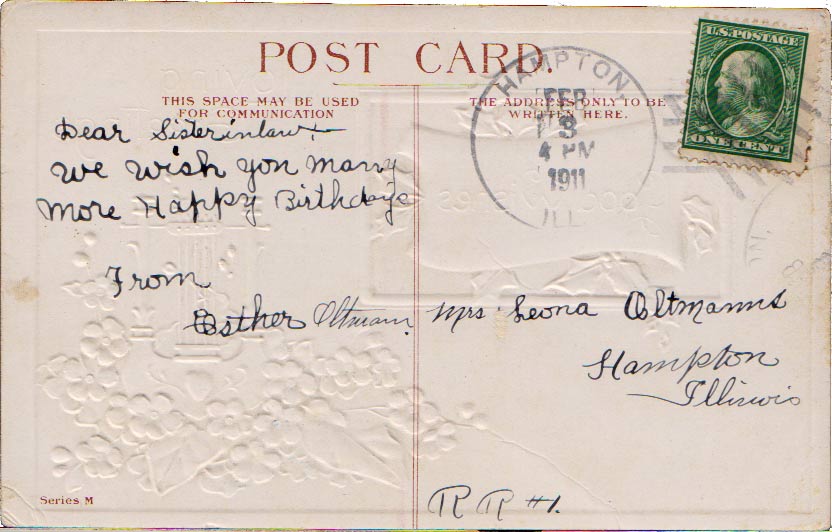 POST CARD.
THIS SPACE MAY BE USED
FOR COMMUNICATION
THE ADDRESS ONLY TO BE
WRITTEN HERE.
HAMPTON
FEB
3
4 PM
1911
ILL.
U.S. POSTAGE
ONE CENT
Dear Sisterinlaw
we wish you many
more Happy Birthdays
From
Esther Oltmann.
Mrs. Leona Oltmanns
Hampton
Illinois
R R #1.
Series M